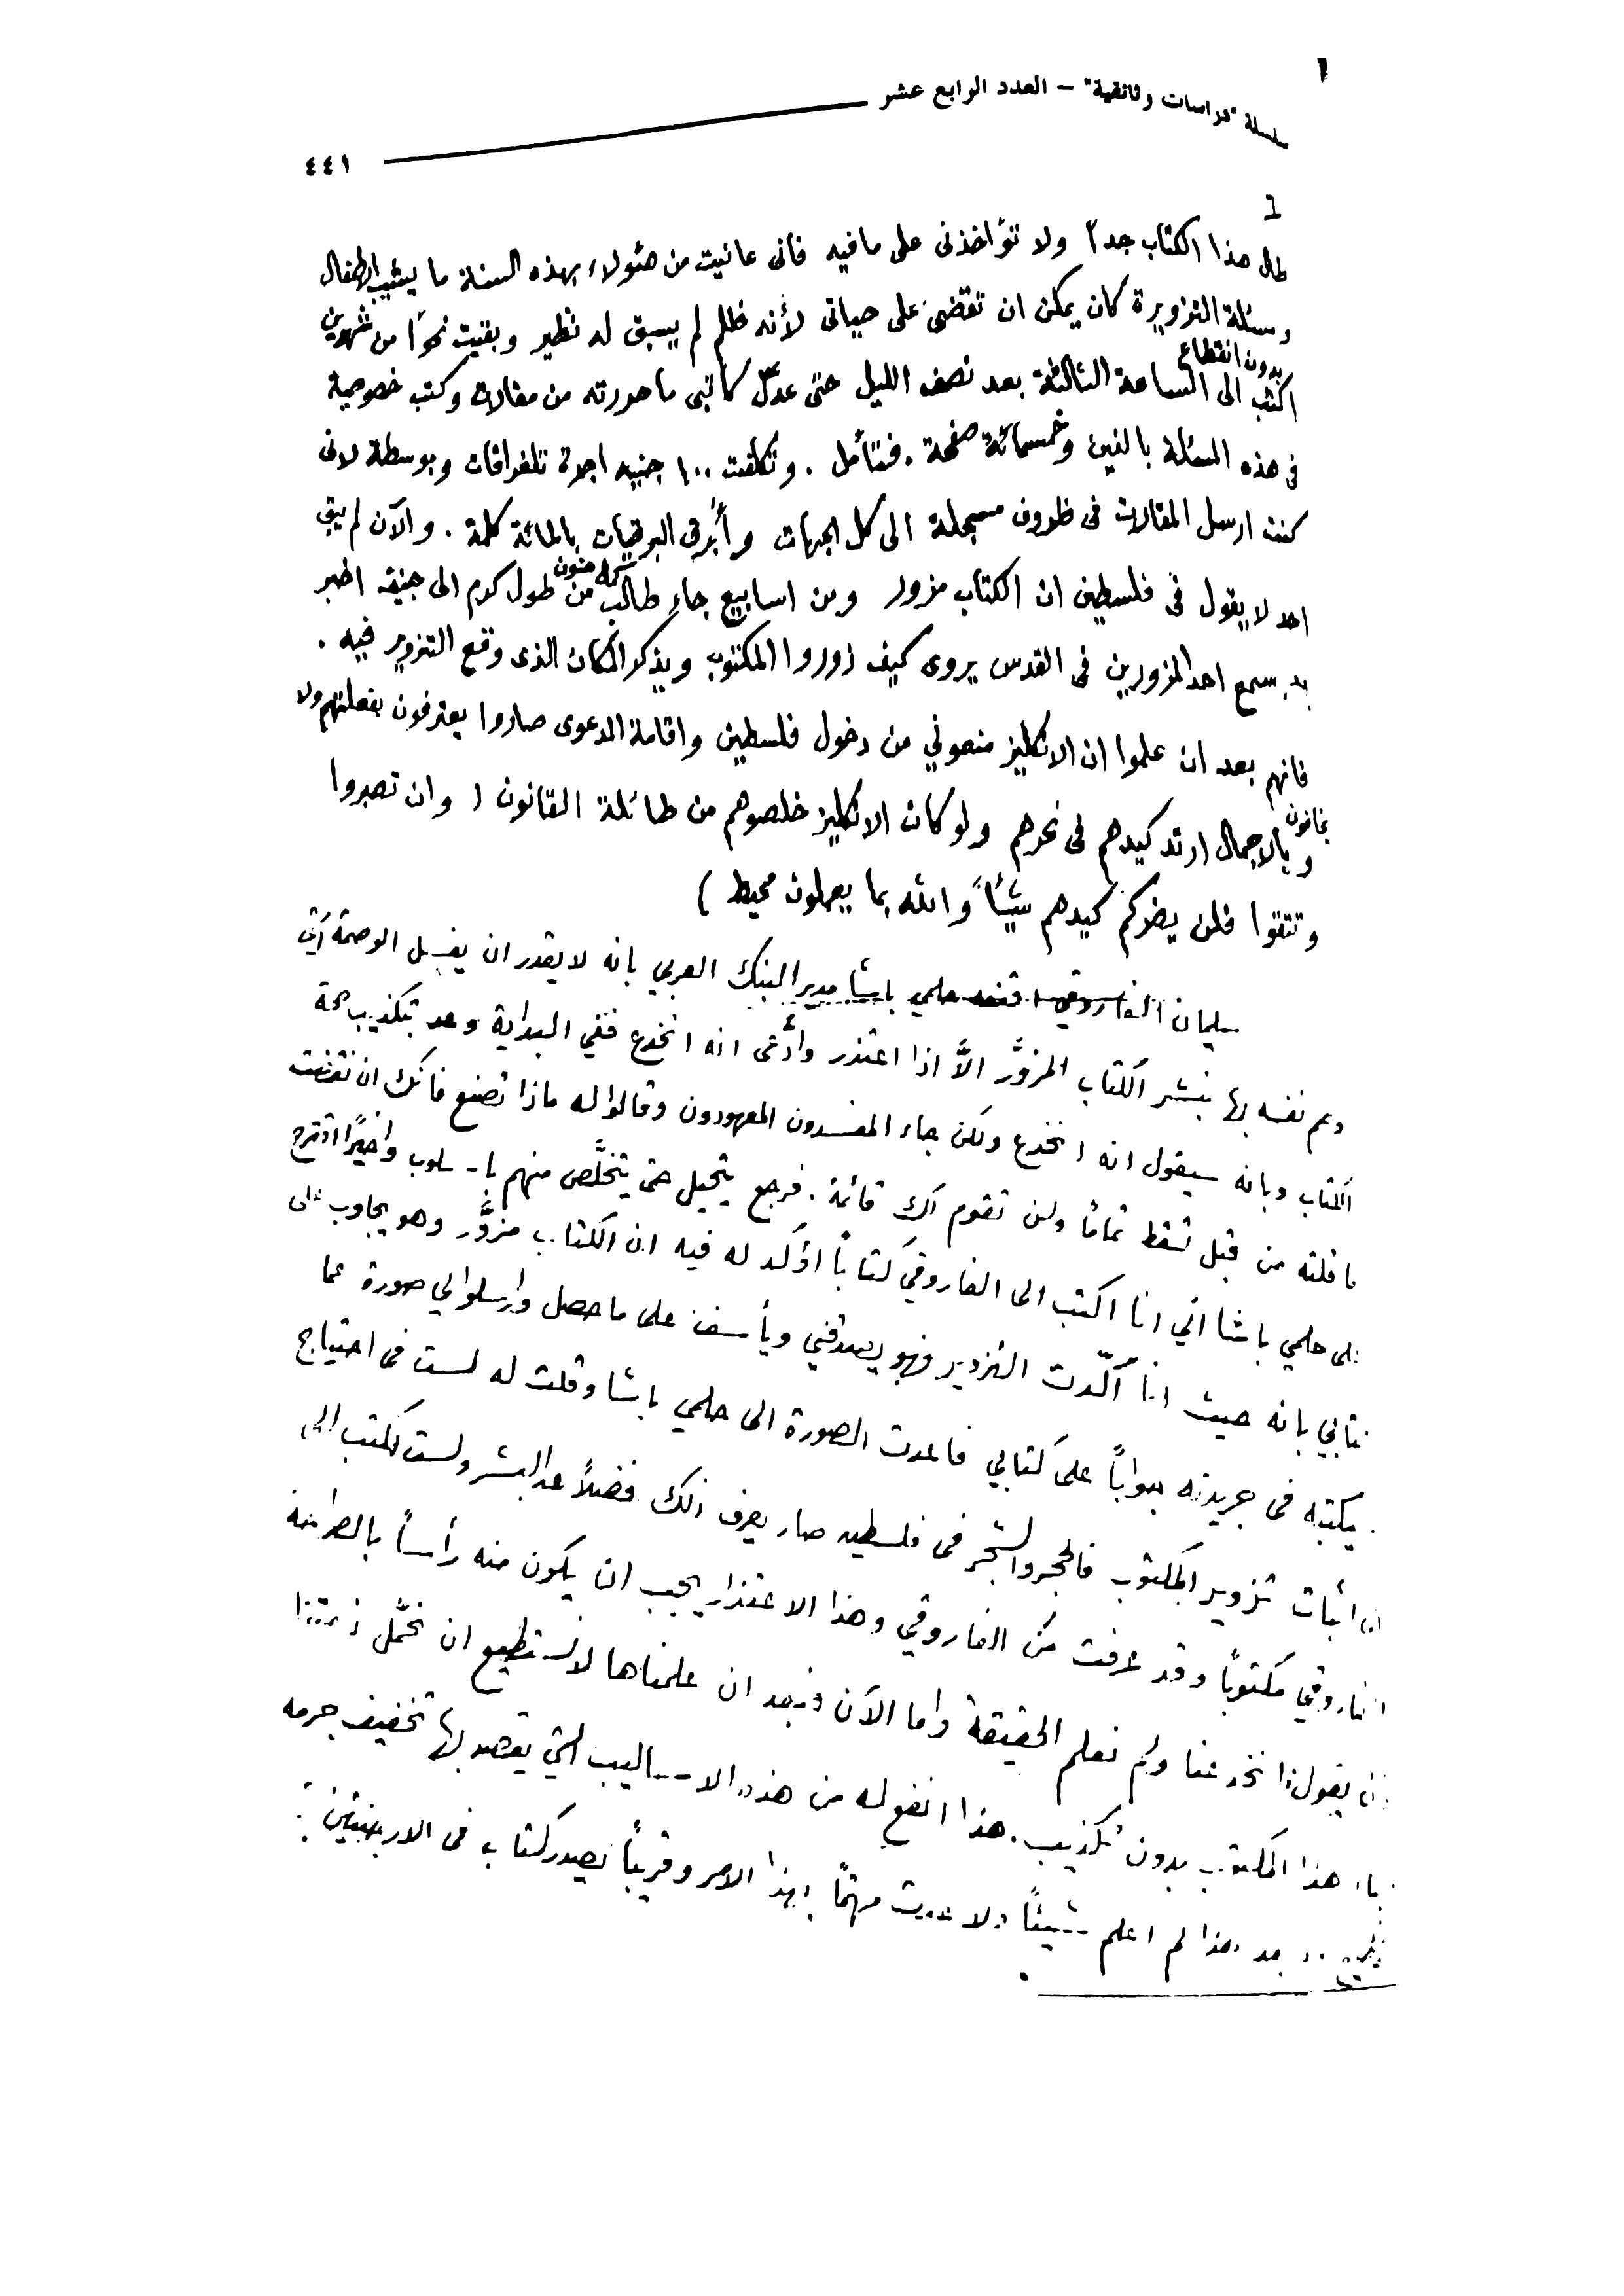 سلسلة "دراسات وثائقية" – العدد الرابع عشر
٤٤١
طال هذا الكتاب جداً ولا تؤاخذنى على ما فيه فانى عانيت من هئولاء بهذه السنة ما يشيب الاطفال
ومسئلة التزويرة كان يمكن ان تقضى على حياتى لأنه ظلم لم يسبق له نظير وبقيت نحوًا من شهرين
بدون انقطاع
اكتب الى الساعة الثالثة بعد نصف الليل حتى عدّل كاتبى ما حورته من مقالات وكتب خصوصية
فى هذه المسئلة بالفين وخمسمائة صفحة . فتأمل . وتكلفت ١٠٠ جنيه اجرة تلغرافات وبوسطة لانى
كنت ارسل المقالات فى ظروف مسجلة الى كل الجهات وأبرق البرقيات بالمائة كلمة . والآن لم يبق
احد لا يقول فى فلسطين ان الكتاب مزور ومن اسابيع جاء طالب من طول كرم الى جنيف اخبر
بـ سمع احد المزورين فى القدس يروى كيف زوروا المكتوب ويذكر المكان الذى وقع التزوير فيه .
فانهم بعد ان علموا ان الانكليز منعوني من دخول فلسطين واقامة الدعوى صاروا يعترفون بفعلتهم ولا
يخافون
وبالاجمال ارتد كيدهم فى نحرهم ولو كان الانكليز خلصوهم من طائلة القانون ( وان تصبروا
وتتقوا فلن يضركم كيدهم شيئاً والله بما يعملون محيط )
سليمان الفاروقي اقنعه حلمي باشا مدير البنك العربي بانه لا يقدر ان يغسل الوصمة التي
وسم نفسه بها بنشر الكتاب المزوَّر الاَّ اذا اعتذر وادَّعى انه انخدع ففي البداية وعد بتكذيب صحة
الكتاب وبانه سيقول انه انخدع ولكن جاء المفسدون المعهودون وقالوا له ماذا تصنع فانك ان نقضت
ما قلته من قبل تسقط تمامًا ولن تقوم لك قائمة . فرجع يتحيل حتى يتخلَّص منهم باسلوب واخيرًا اقترح
على حلمي باشا اني انا اكتب الى الفاروقي كتاباً اؤكد له فيه ان الكتاب مزوَّر وهو يجاوب على
كتابي بانه حيث انا أكّدت التزوير فهو يصدقني ويأسف على ما حصل وارسلوا لي صورة عما
يكتبه فى جريدته جواباً على كتابي فاعدت الصورة الى حلمي باشا وقلت له لست فى احتياج
الى اثبات تزوير المكتوب فالحجر والشجر فى فلسطين صار يعرف ذلك فضلاً عن البشر ولست لاكتب الى
الفاروقي مكتوبًا وقد عرفت من الفاروقي وهذا الاعتذار يجب ان يكون منه رأساً بالصراحة
ان يقول انخدعنا ولم نعلم الحقيقة واما الآن فبعد ان علمناها لا نستطيع ان نحمّل ذمتنا
هذا المكتوب بدون تكذيب . هذا انفع له من هذه الاساليب التي يقصد بها تخفيف جرمه
بعد هذا لم اعلم شيئاً ولا عدت مهتمًا بهذا الامر وقريباً يصدر كتاب فى الارجنتين